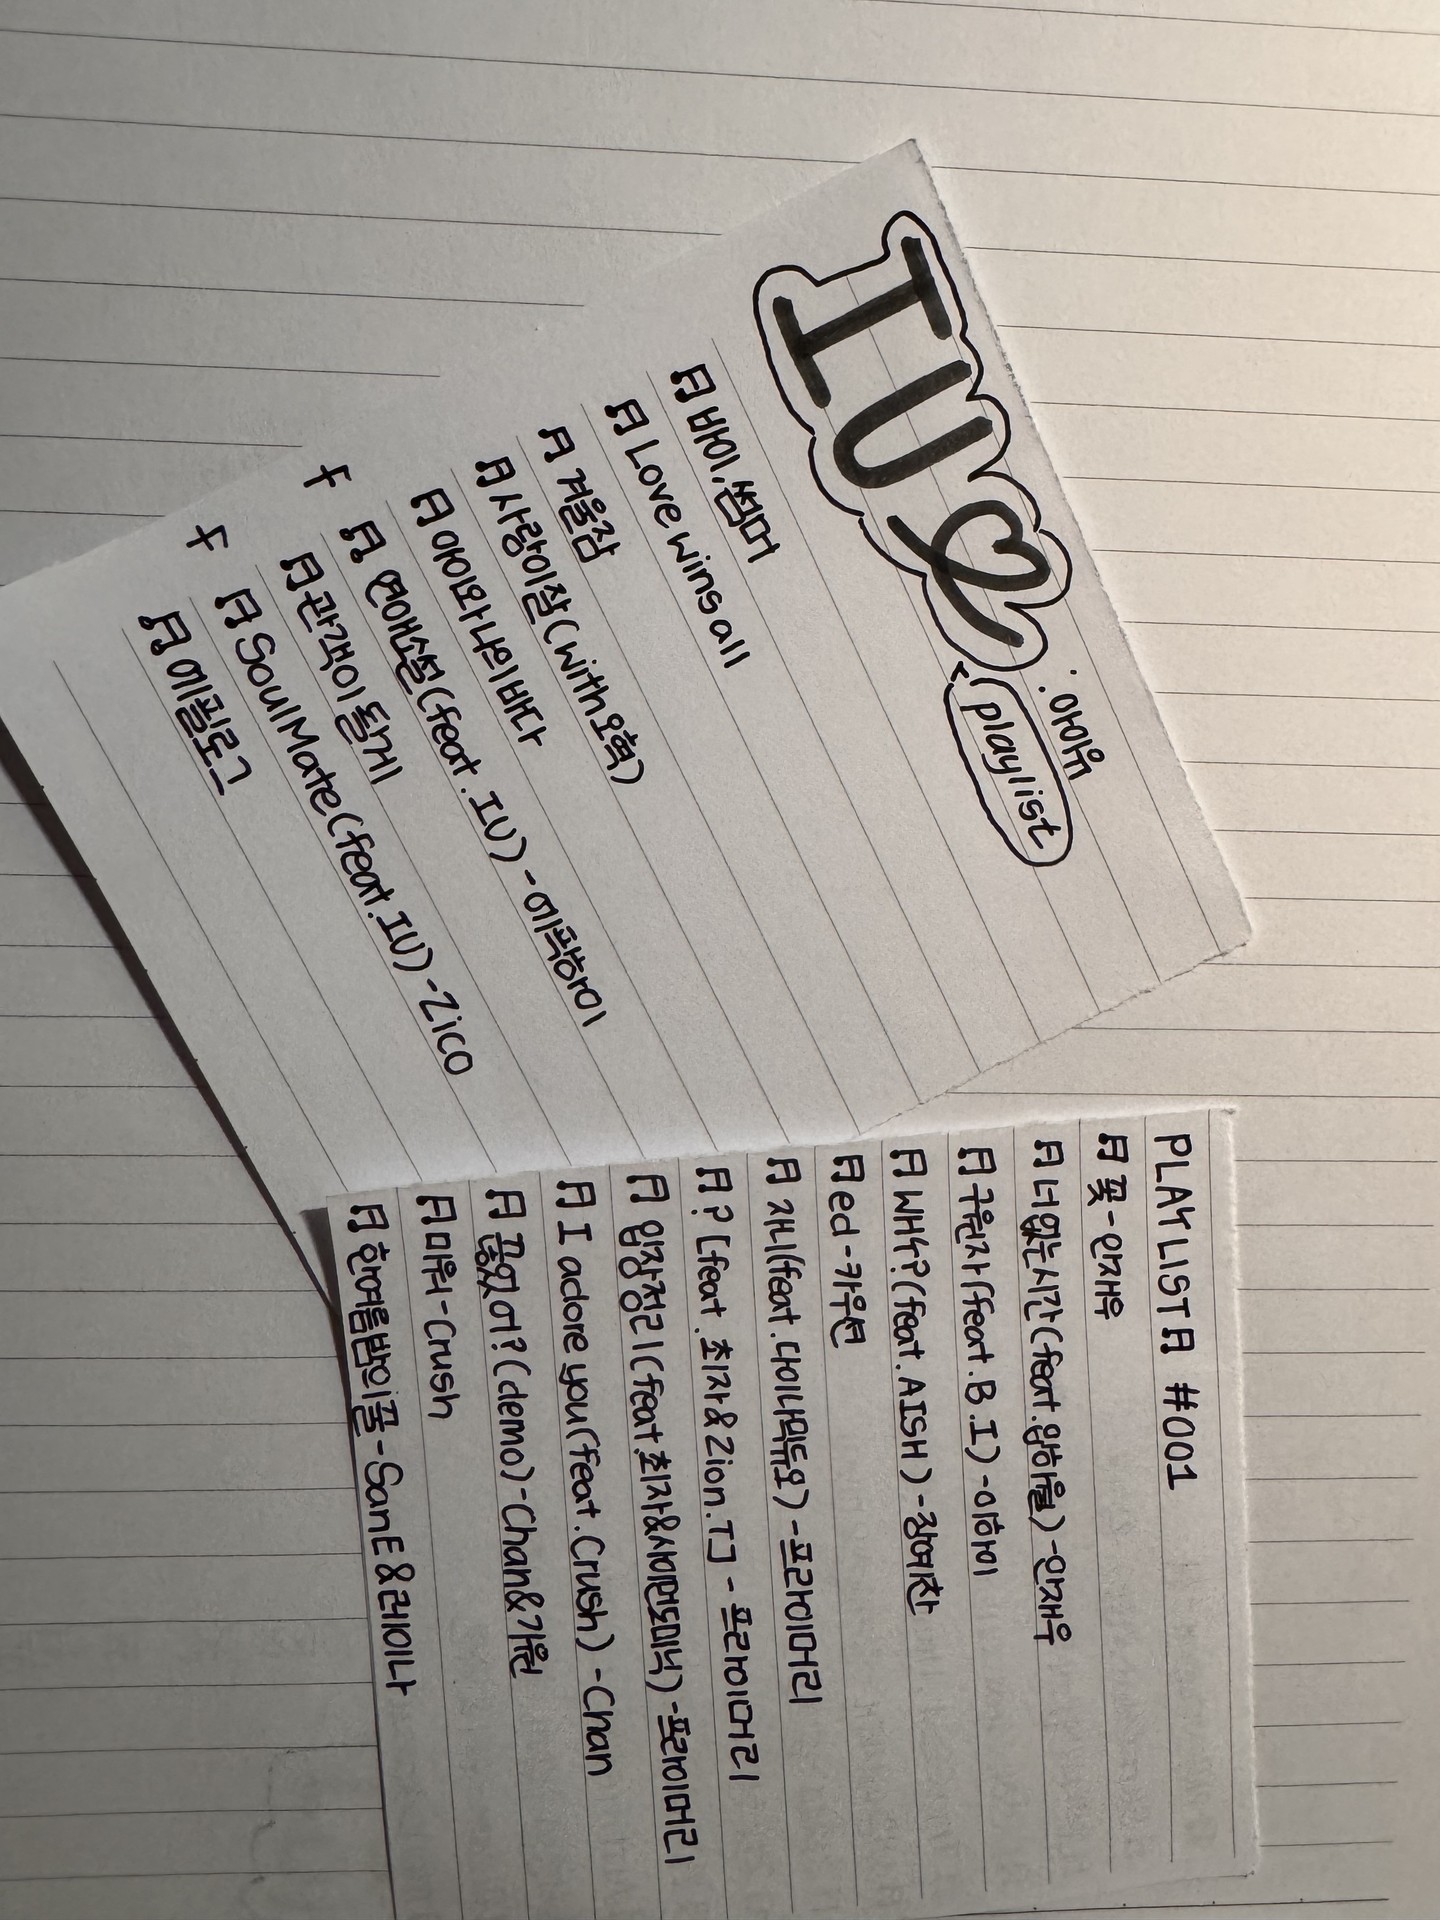 IU♡
:아이유
playlist
♫ 바이,썸머
♫ Love wins all
♫ 겨울잠
♫ 사랑이잘(with오혁)
♫ 아이와나의바다
+ ♫ 연애소설(feat.IU)-에픽하이
♫ 관객이될게
+ ♫ SoulMate(feat.IU)-Zico
♫ 에필로그
PLAYLIST♫ #001
♫ 꽃-안재우
♫ 너없는시간(feat.왑하월)-안재우
♫ 구원자(feat.B.I)-이하이
♫ WHY?(feat.AISH)-장예찬
♫ ed-카우션
♫ 자니(feat.다이나믹듀오)-프라이머리
♫ ?[feat.최자&Zion.T]-프라이머리
♫ 입장정리(feat.최자&사이먼도미닉)-프라이머리
♫ I adore you(feat.Crush)-Chan
♫ 끊었어?(demo)-Chan&기원
♫ 미워-Crush
♫ 한여름밤의꿀-SanE&레이나